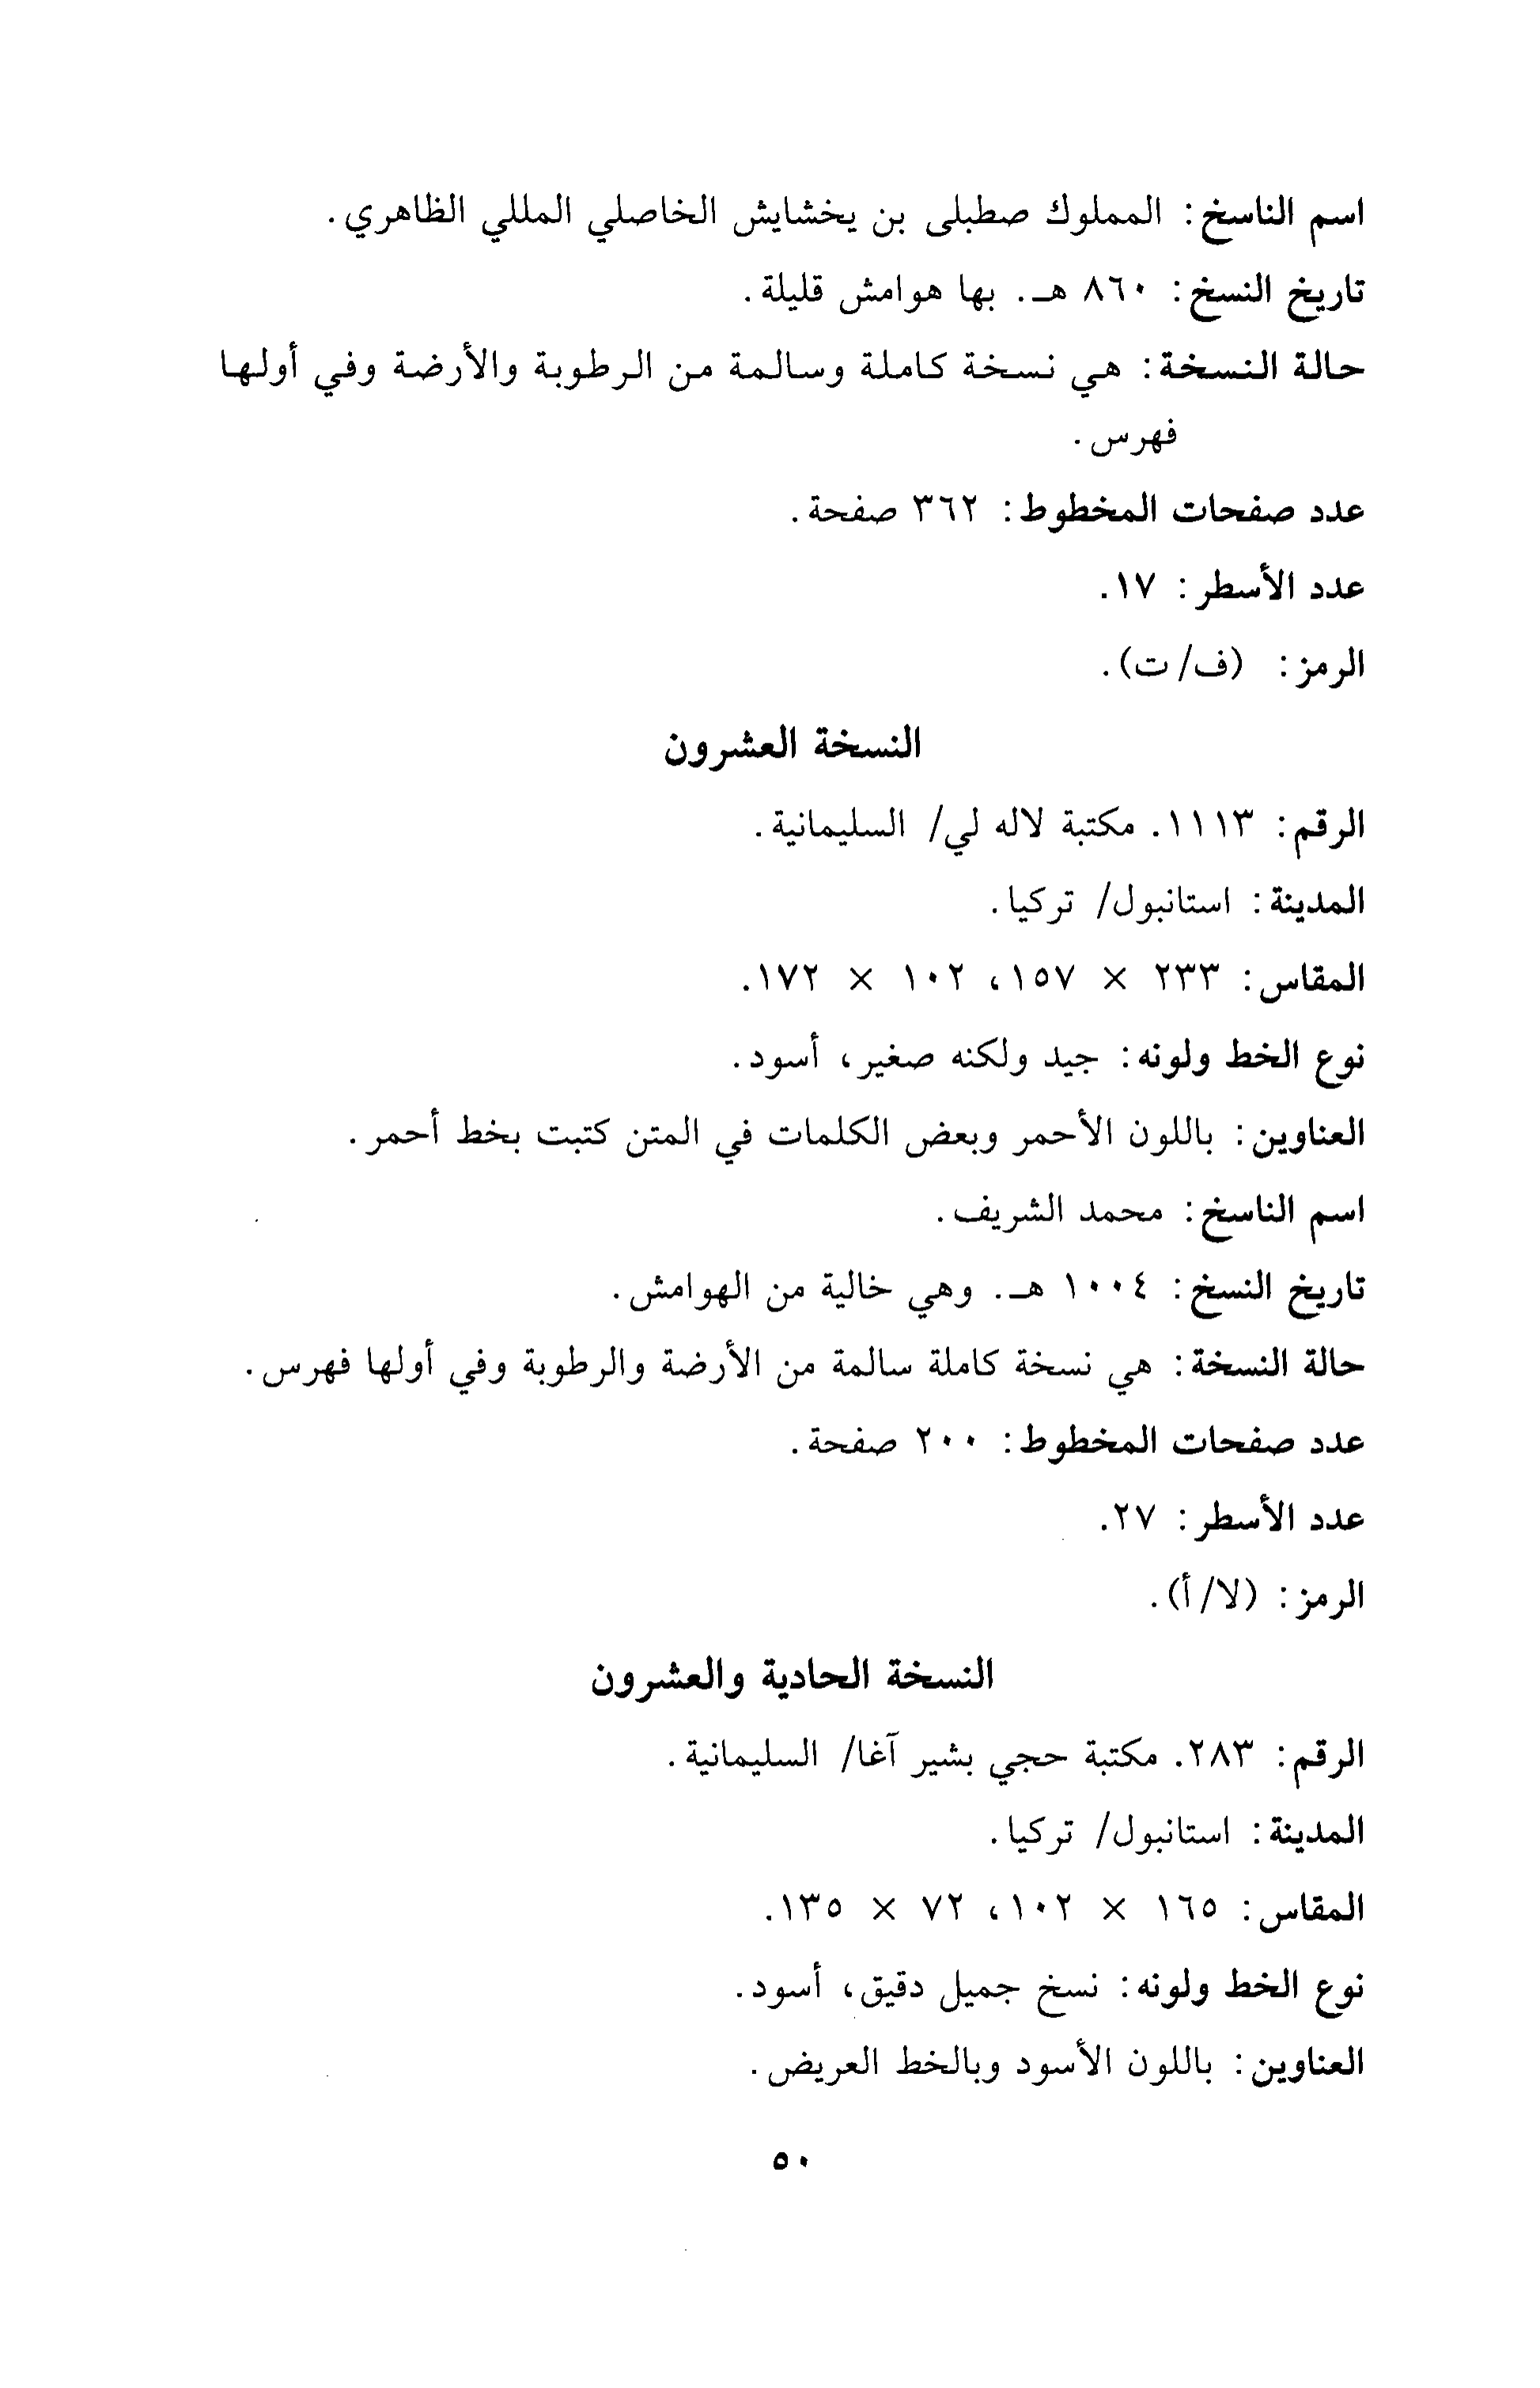 اسم الناسخ: المملوك صطبلى بن يخشايش الخاصلي المللي الظاهري.
تاريخ النسخ: ٨٦٠ هـ. بها هوامش قليلة.
حالة النسخة: هي نسخة كاملة وسالمة من الرطوبة والأرضة وفي أولها
فهرس.
عدد صفحات المخطوط: ٣٦٢ صفحة.
عدد الأسطر: ١٧.
الرمز: (ف/ ت).
النسخة العشرون
الرقم: ١١١٣. مكتبة لاله لي/ السليمانية.
المدينة: استانبول/ تركيا.
المقاس: ٢٣٣ × ١٥٧، ١٠٢ × ١٧٢.
نوع الخط ولونه: جيد ولكنه صغير، أسود.
العناوين: باللون الأحمر وبعض الكلمات في المتن كتبت بخط أحمر.
اسم الناسخ: محمد الشريف.
تاريخ النسخ: ١٠٠٤ هـ. وهي خالية من الهوامش.
حالة النسخة: هي نسخة كاملة سالمة من الأرضة والرطوبة وفي أولها فهرس.
عدد صفحات المخطوط: ٢٠٠ صفحة.
عدد الأسطر: ٢٧.
الرمز: (لا/ أ).
النسخة الحادية والعشرون
الرقم: ٢٨٣. مكتبة حجي بشير آغا/ السليمانية.
المدينة: استانبول/ تركيا.
المقاس: ١٦٥ × ١٠٢، ٧٢ × ١٣٥.
نوع الخط ولونه: نسخ جميل دقيق، أسود.
العناوين: باللون الأسود وبالخط العريض.
٥٠